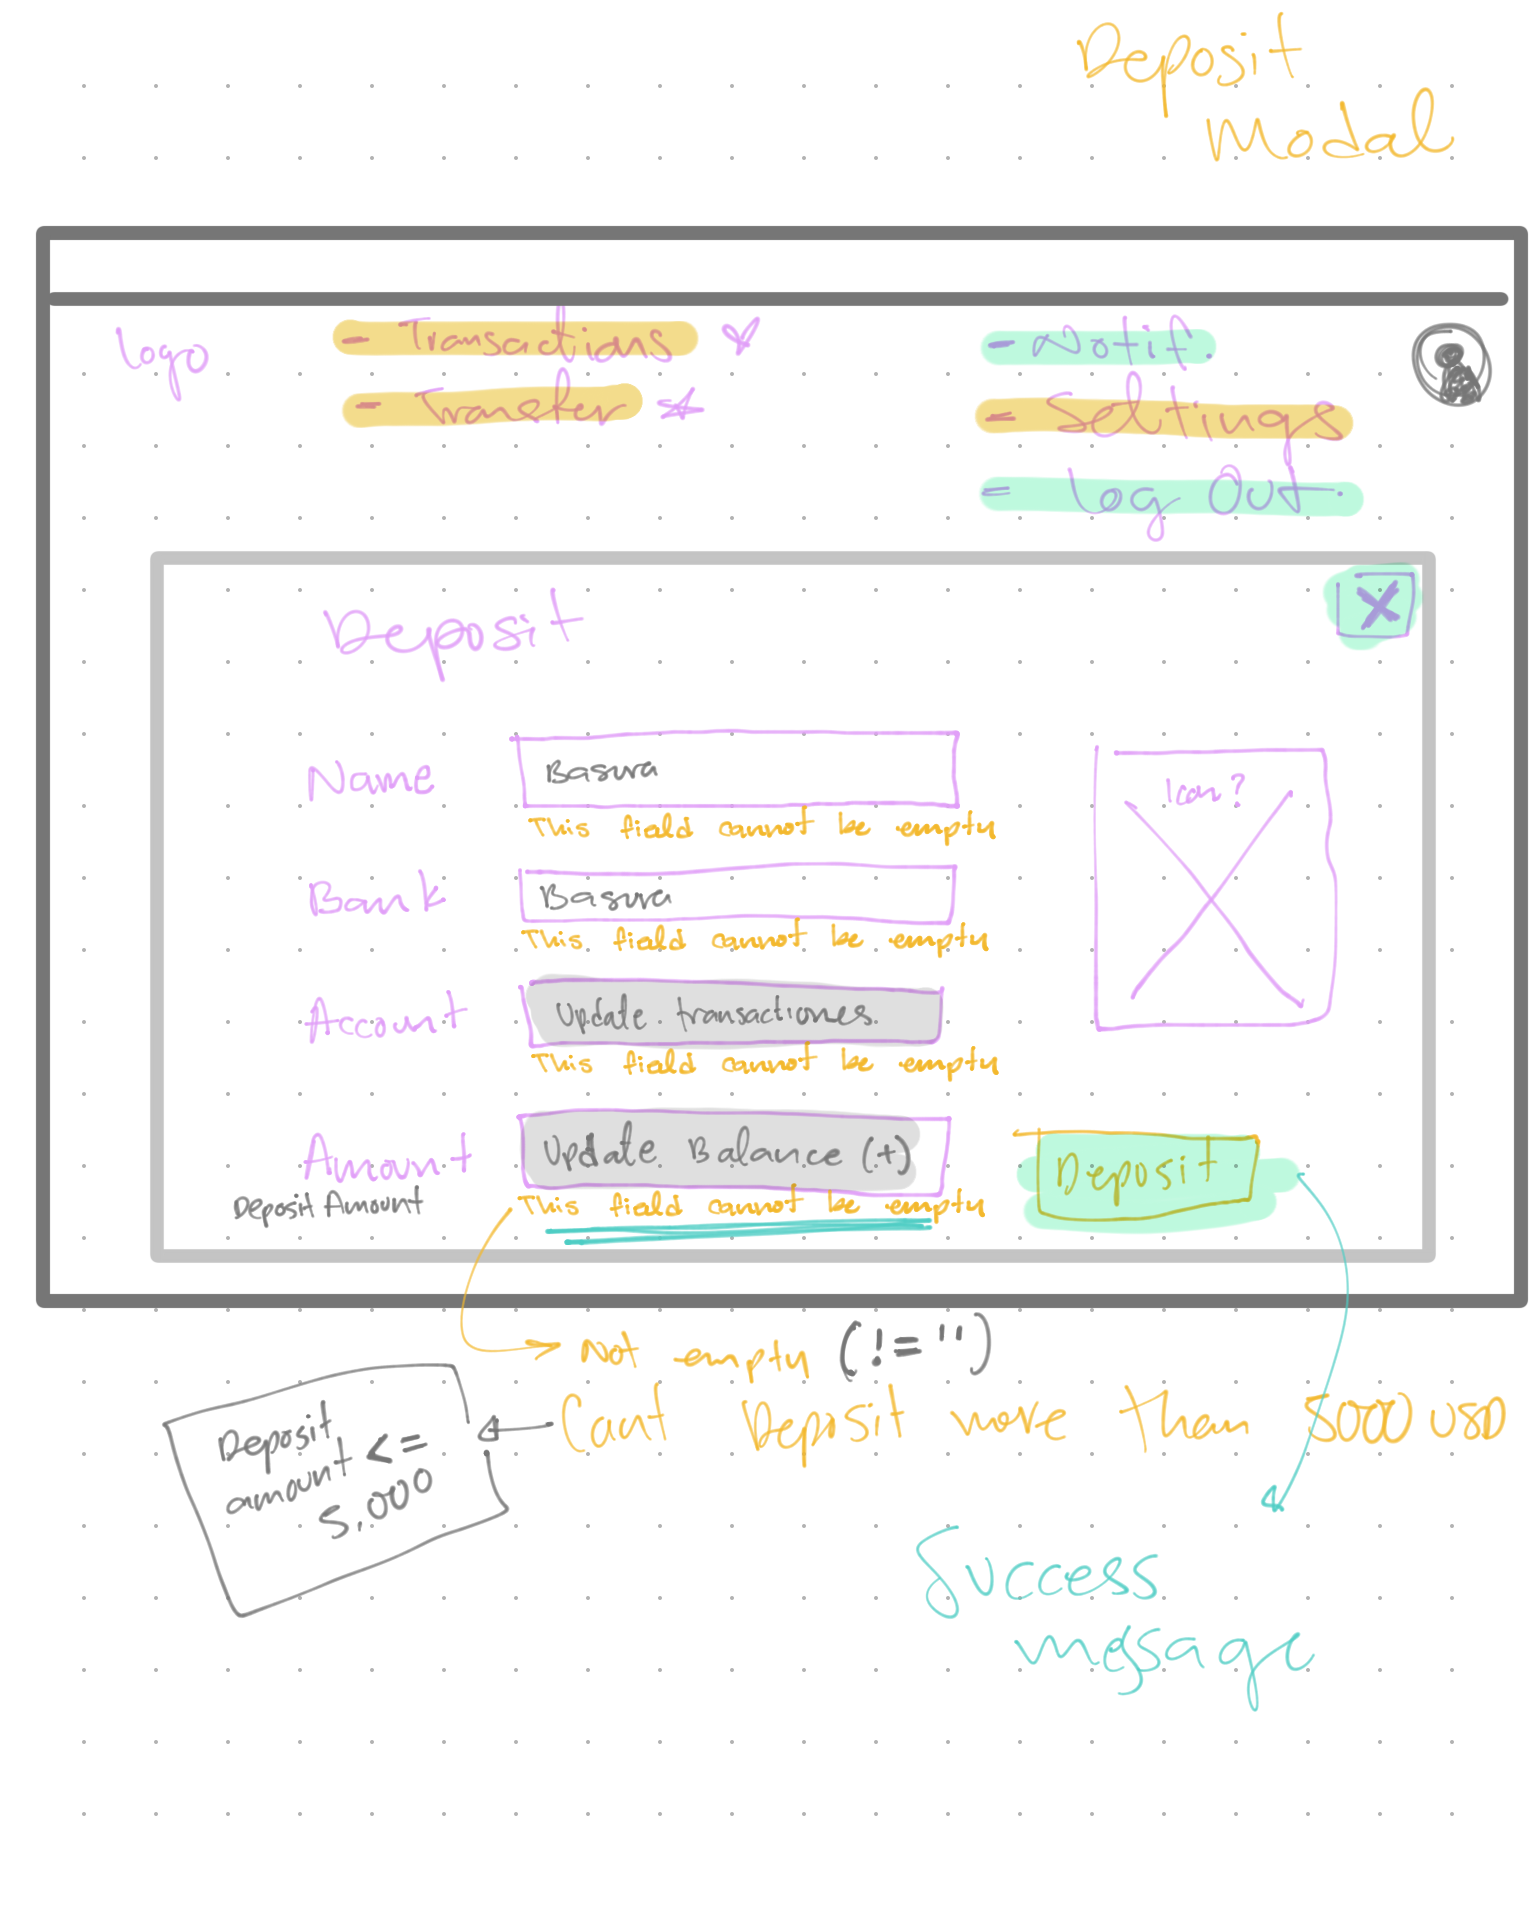 Deposit
Modal
Logo
- Transactions
- Transfer
- Notif.
- Settings
- Log Out.
Deposit
X
Name
Basura
This field cannot be empty
Icon?
Bank
Basura
This field cannot be empty
Account
Update transactiones.
This field cannot be empty
Amount
Update Balance (+)
Deposit
Deposit Amount
This field cannot be empty
Not empty (!= '')
Cant Deposit more than 5000 USD
Deposit
amount <=
5,000
Success
message